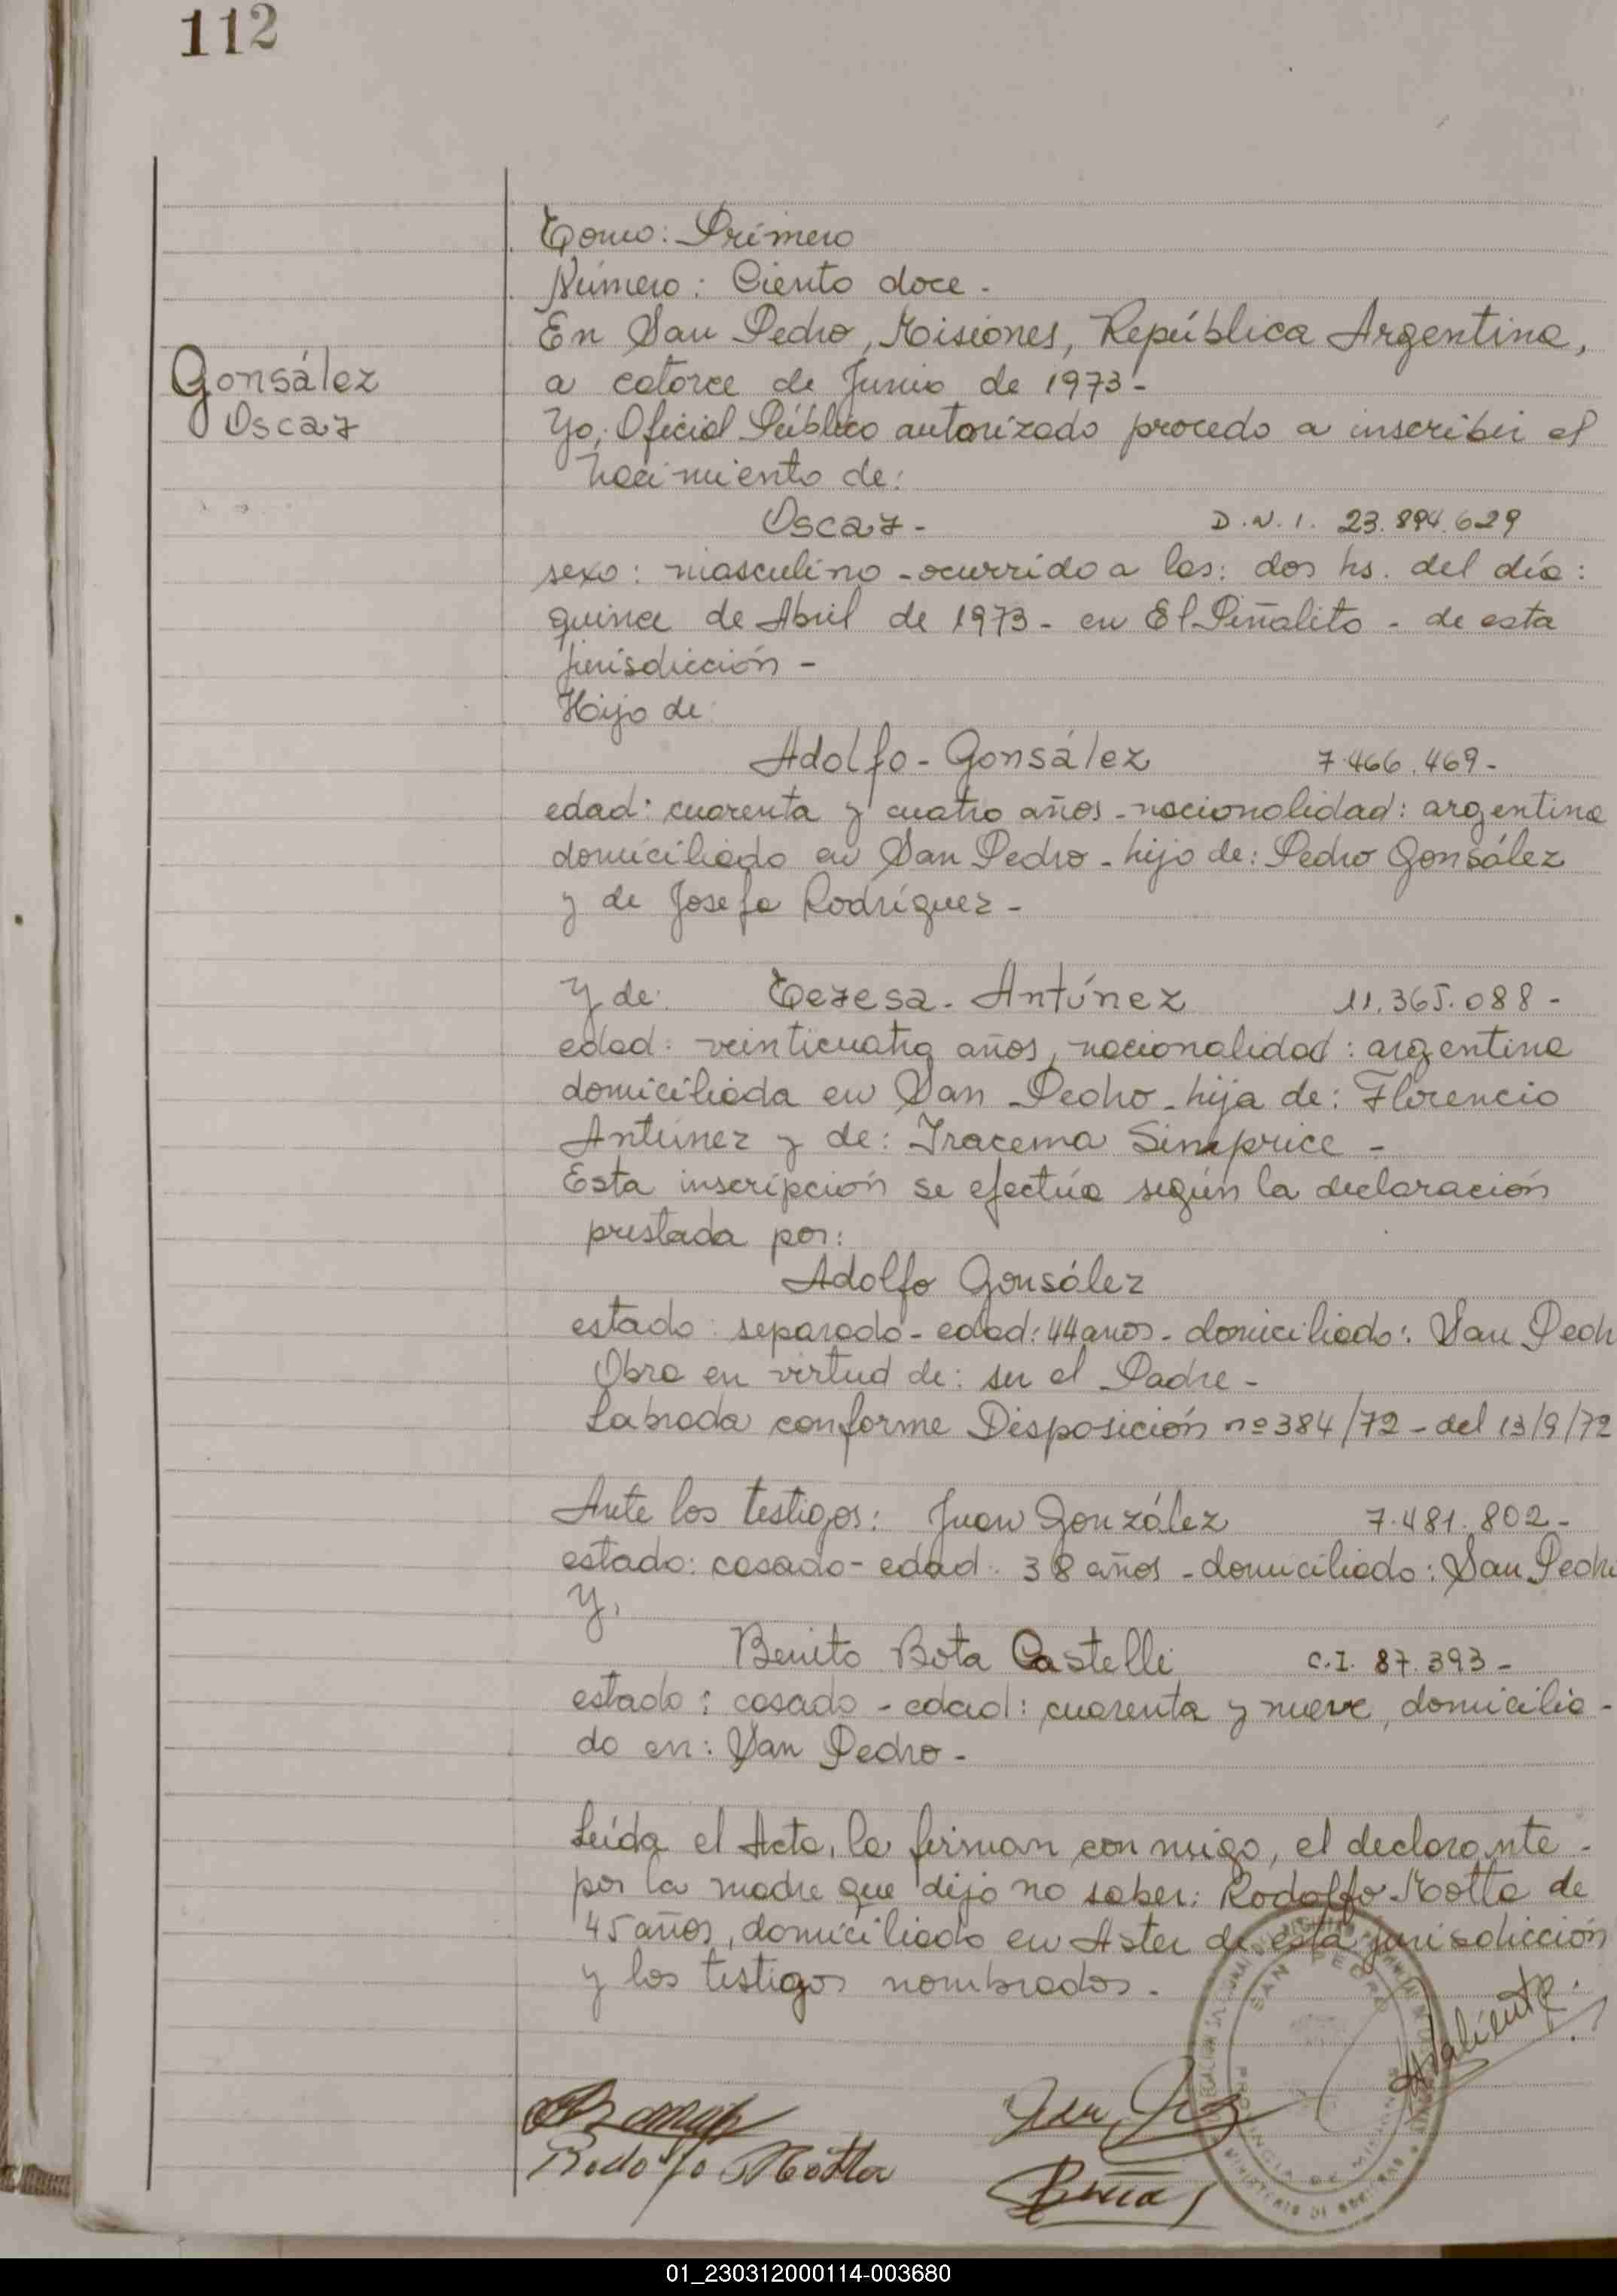 112
Gonsález
Oscar
Tomo: Primero
Número: Ciento doce -
En San Pedro, Misiones, República Argentina,
a catorce de Junio de 1973 -
Yo, Oficial Público autorizado procedo a inscribir el
Nacimiento de:
Oscar - D.N.I. 23.894.629
sexo: masculino - ocurrido a las: dos hs. del día:
quince de Abril de 1973 - en El Piñalito - de esta
jurisdicción -
Hijo de
Adolfo - Gonsález 7.466.469 -
edad: cuarenta y cuatro años - nacionalidad: argentina
domiciliado en San Pedro - hijo de: Pedro Gonsález
y de Josefa Rodríguez -
Y de: Teresa - Antúnez 11.365.088 -
edad: veinticuatro años, nacionalidad: argentina
domiciliada en San Pedro - hija de: Florencio
Antúnez y de: Iracema Simprice -
Esta inscripción se efectúa según la declaración
prestada por:
Adolfo Gonsález
estado separado - edad: 44 anos - domiciliado: San Pedr
Obra en virtud de: ser el Padre -
Labrada conforme Disposición nº 384/72 - del 13/9/72
Ante los testigos: Juan González 7.481.802 -
estado: casado - edad: 38 años - domiciliado: San Pedro
Y,
Benito Bota Castelli C.I. 87.393 -
estado: casado - edad: cuarenta y nueve, domicilia -
do en: San Pedro -
Leída el Acta, la firman con migo, el declarante -
por la madre que dijo no saber: Rodolfo Motta de
45 años, domiciliado en Aster de esta jurisdicción
y los testigos nombrados -
SAN PEDRO
PROVINCIA DE MISIONES
MINISTERIO DE GOBIERNO
Rodolfo Motta
01_230312000114-003680